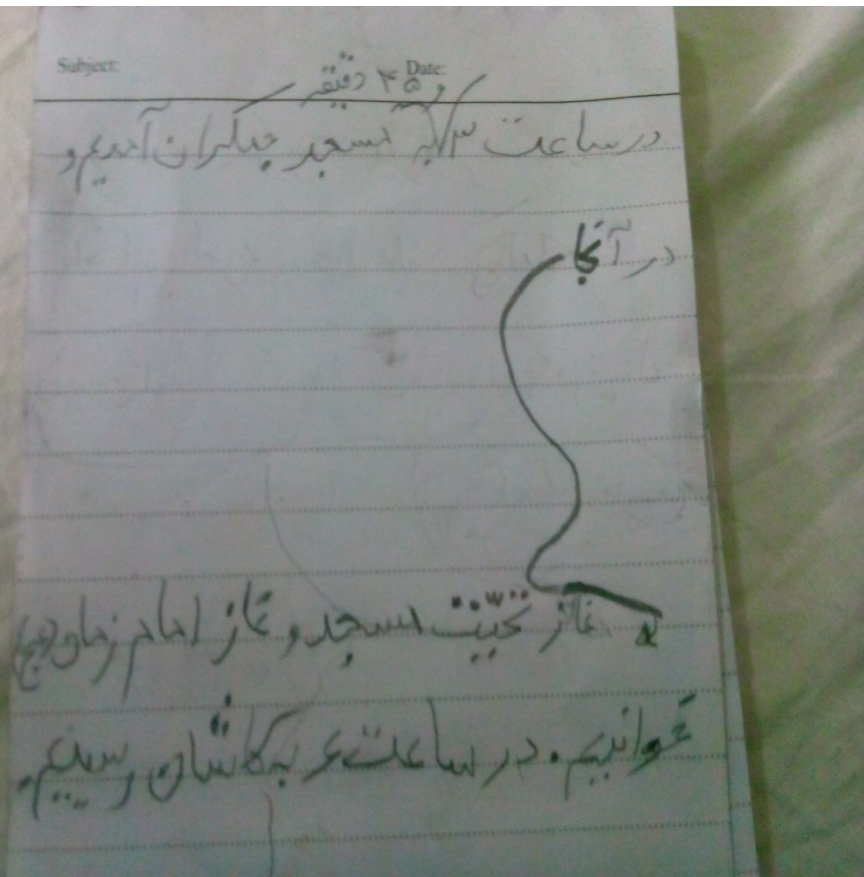 Subject: Date:
و ۴۵ دقیقه
در ساعت ۳ به مسجد جمکران آمدیم و
در آنجا
نماز تحیت مسجد و نماز امام زمان (عج)
خواندیم. در ساعت ۶ به کاشان رسیدیم.